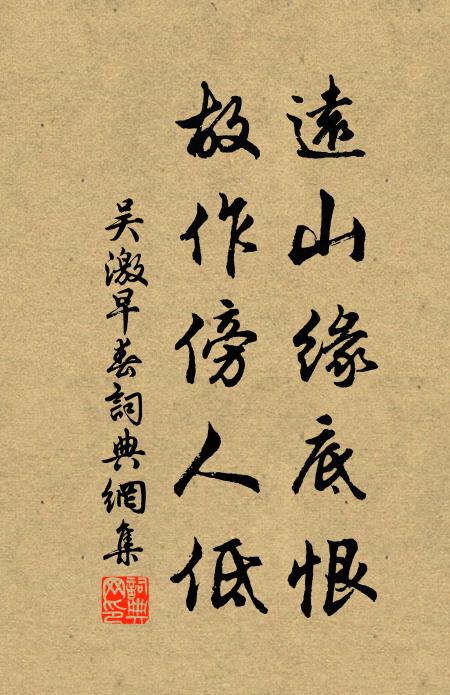 遠山緣底恨
故作傍人低
吴激早春詞典網集
詞典網印